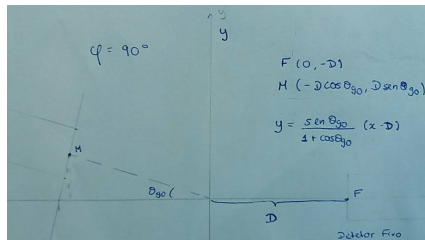 y
y
φ = 90°
F (0, -D)
M (-D cosθ90, D senθ90)
y = senθ90 / 1 + cosθ90 (x - D)
M
θ90 (
F
D
Detetor Fixo